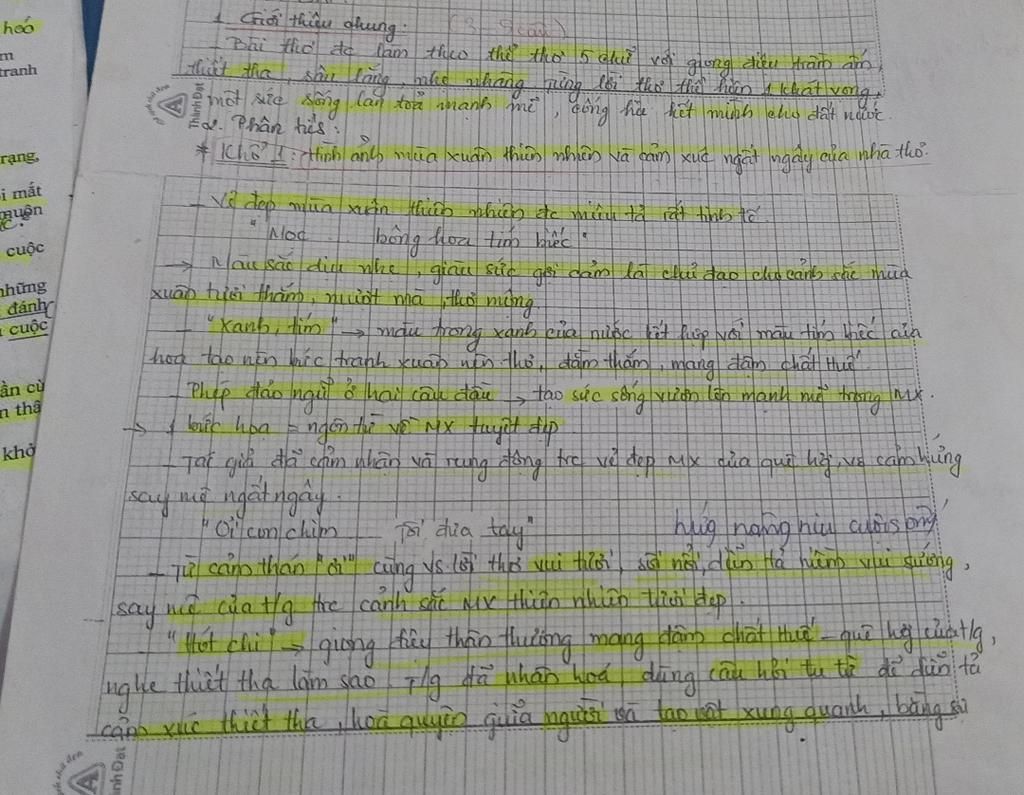 hoá
m
tranh
rạng,
i mắt
muộn
cuộc
những
đánh
cuộc
ần cù
n thâ
khở
1. Giới thiệu chung: (3-5 câu)
- Bài thơ đc làm theo thể thơ 5 chữ với giọng điệu trầm ấm,
thiết tha, sâu lắng, nhẹ nhàng từng lời thơ thể hiện 1 khát vọng,
một sức sống lan toả mạnh mẽ, cống hiến hết mình cho đất nước.
2. Phân tích:
* Khổ 1: Hình ảnh mùa xuân thiên nhiên và cảm xúc ngất ngây của nhà thơ.
- Vẻ đẹp mùa xuân thiên nhiên đc miêu tả rất tinh tế.
"Mọc ... bông hoa tím biếc"
→ Màu sắc dịu nhẹ, giàu sức gợi cảm là chủ đạo cho cảnh sắc mùa
xuân tươi thắm, mượt mà, thơ mộng.
- "Xanh, tím" → màu trong xanh của nước kết hợp với màu tím biếc của
hoa tạo nên bức tranh xuân nên thơ, đằm thắm, mang đậm chất Huế.
- Phép đảo ngữ ở hai câu đầu → tạo sức sống vươn lên mạnh mẽ trong MX.
→ 1 bức họa = ngôn từ về MX tuyệt đẹp
- Tác giả đã cảm nhận và rung động trc vẻ đẹp MX của quê hg, vs cảm hứng
say mê ngất ngây.
"Ơi con chim ... Tôi đưa tay" hứng nâng niu cuộc sống
- Từ cảm thán "ơi" cùng vs lời thơ vui tươi, sôi nổi, diễn tả niềm vui sướng,
say mê của t/g trc cảnh sắc MX thiên nhiên tươi đẹp.
"Hót chi" → giọng điệu thân thương mang đậm chất Huế - quê hg của t/g,
nghe thiết tha làm sao. T/g đã nhân hoá, dùng câu hỏi tu từ để diễn tả
cảm xúc thiết tha, hoà quyện giữa người và tạo vật xung quanh, bằng sự
Thành Đạt
A
A